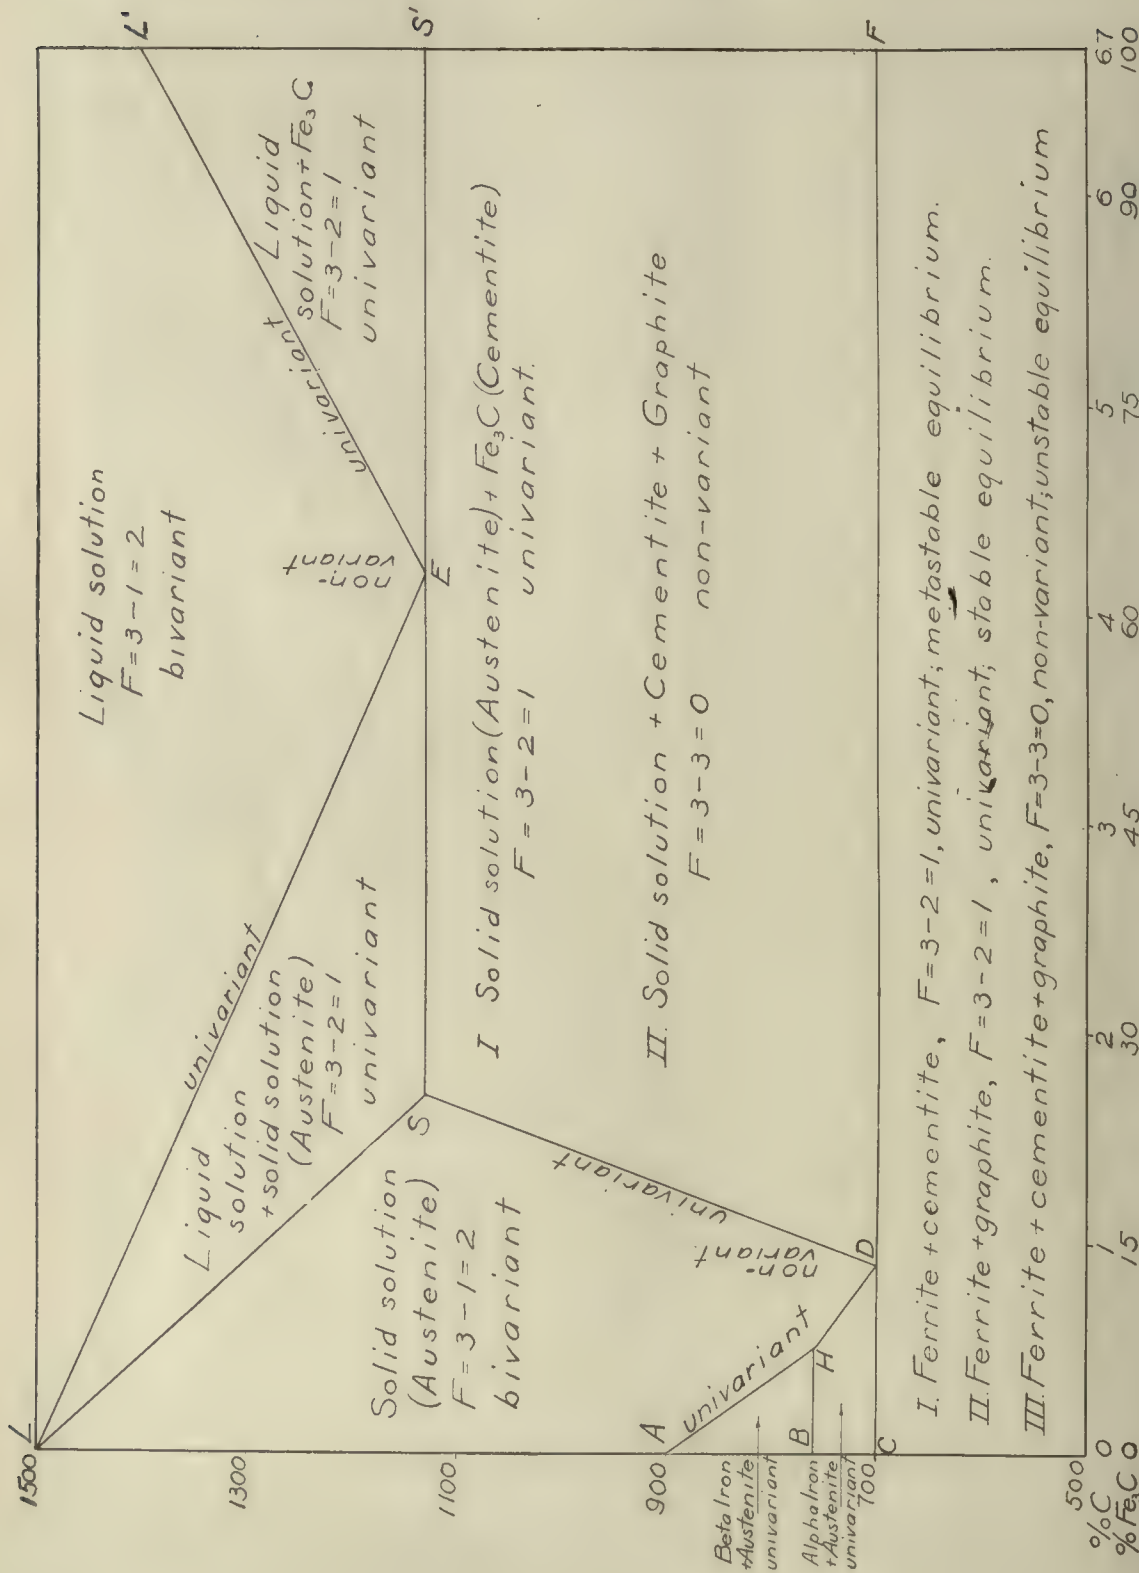 L
L'
1500
Liquid solution
F=3-1=2
bivariant
univariant
univariant
Liquid
solution
+solid solution
(Austenite)
F=3-2=1
univariant
Liquid
solution+Fe₃C
F=3-2=1
univariant
non-
variant
1300
S
E
S'
1100
Solid solution
(Austenite)
F=3-1=2
bivariant
I Solid solution(Austenite)+Fe₃C(Cementite)
F=3-2=1 univariant.
univariant
II. Solid solution + Cementite + Graphite
F=3-3=0 non-variant
900
A
univariant
non-
variant
Beta Iron
+Austenite
univariant
B
H
Alpha Iron
+Austenite
univariant
700
C
D
F
I. Ferrite+cementite, F=3-2=1, univariant; metastable equilibrium.
II. Ferrite+graphite, F=3-2=1, univariant; stable equilibrium.
III. Ferrite+cementite+graphite, F=3-3=0, non-variant; unstable equilibrium
500
%C 0 1 2 3 4 5 6 6.7
%Fe₃C 0 15 30 45 60 75 90 100